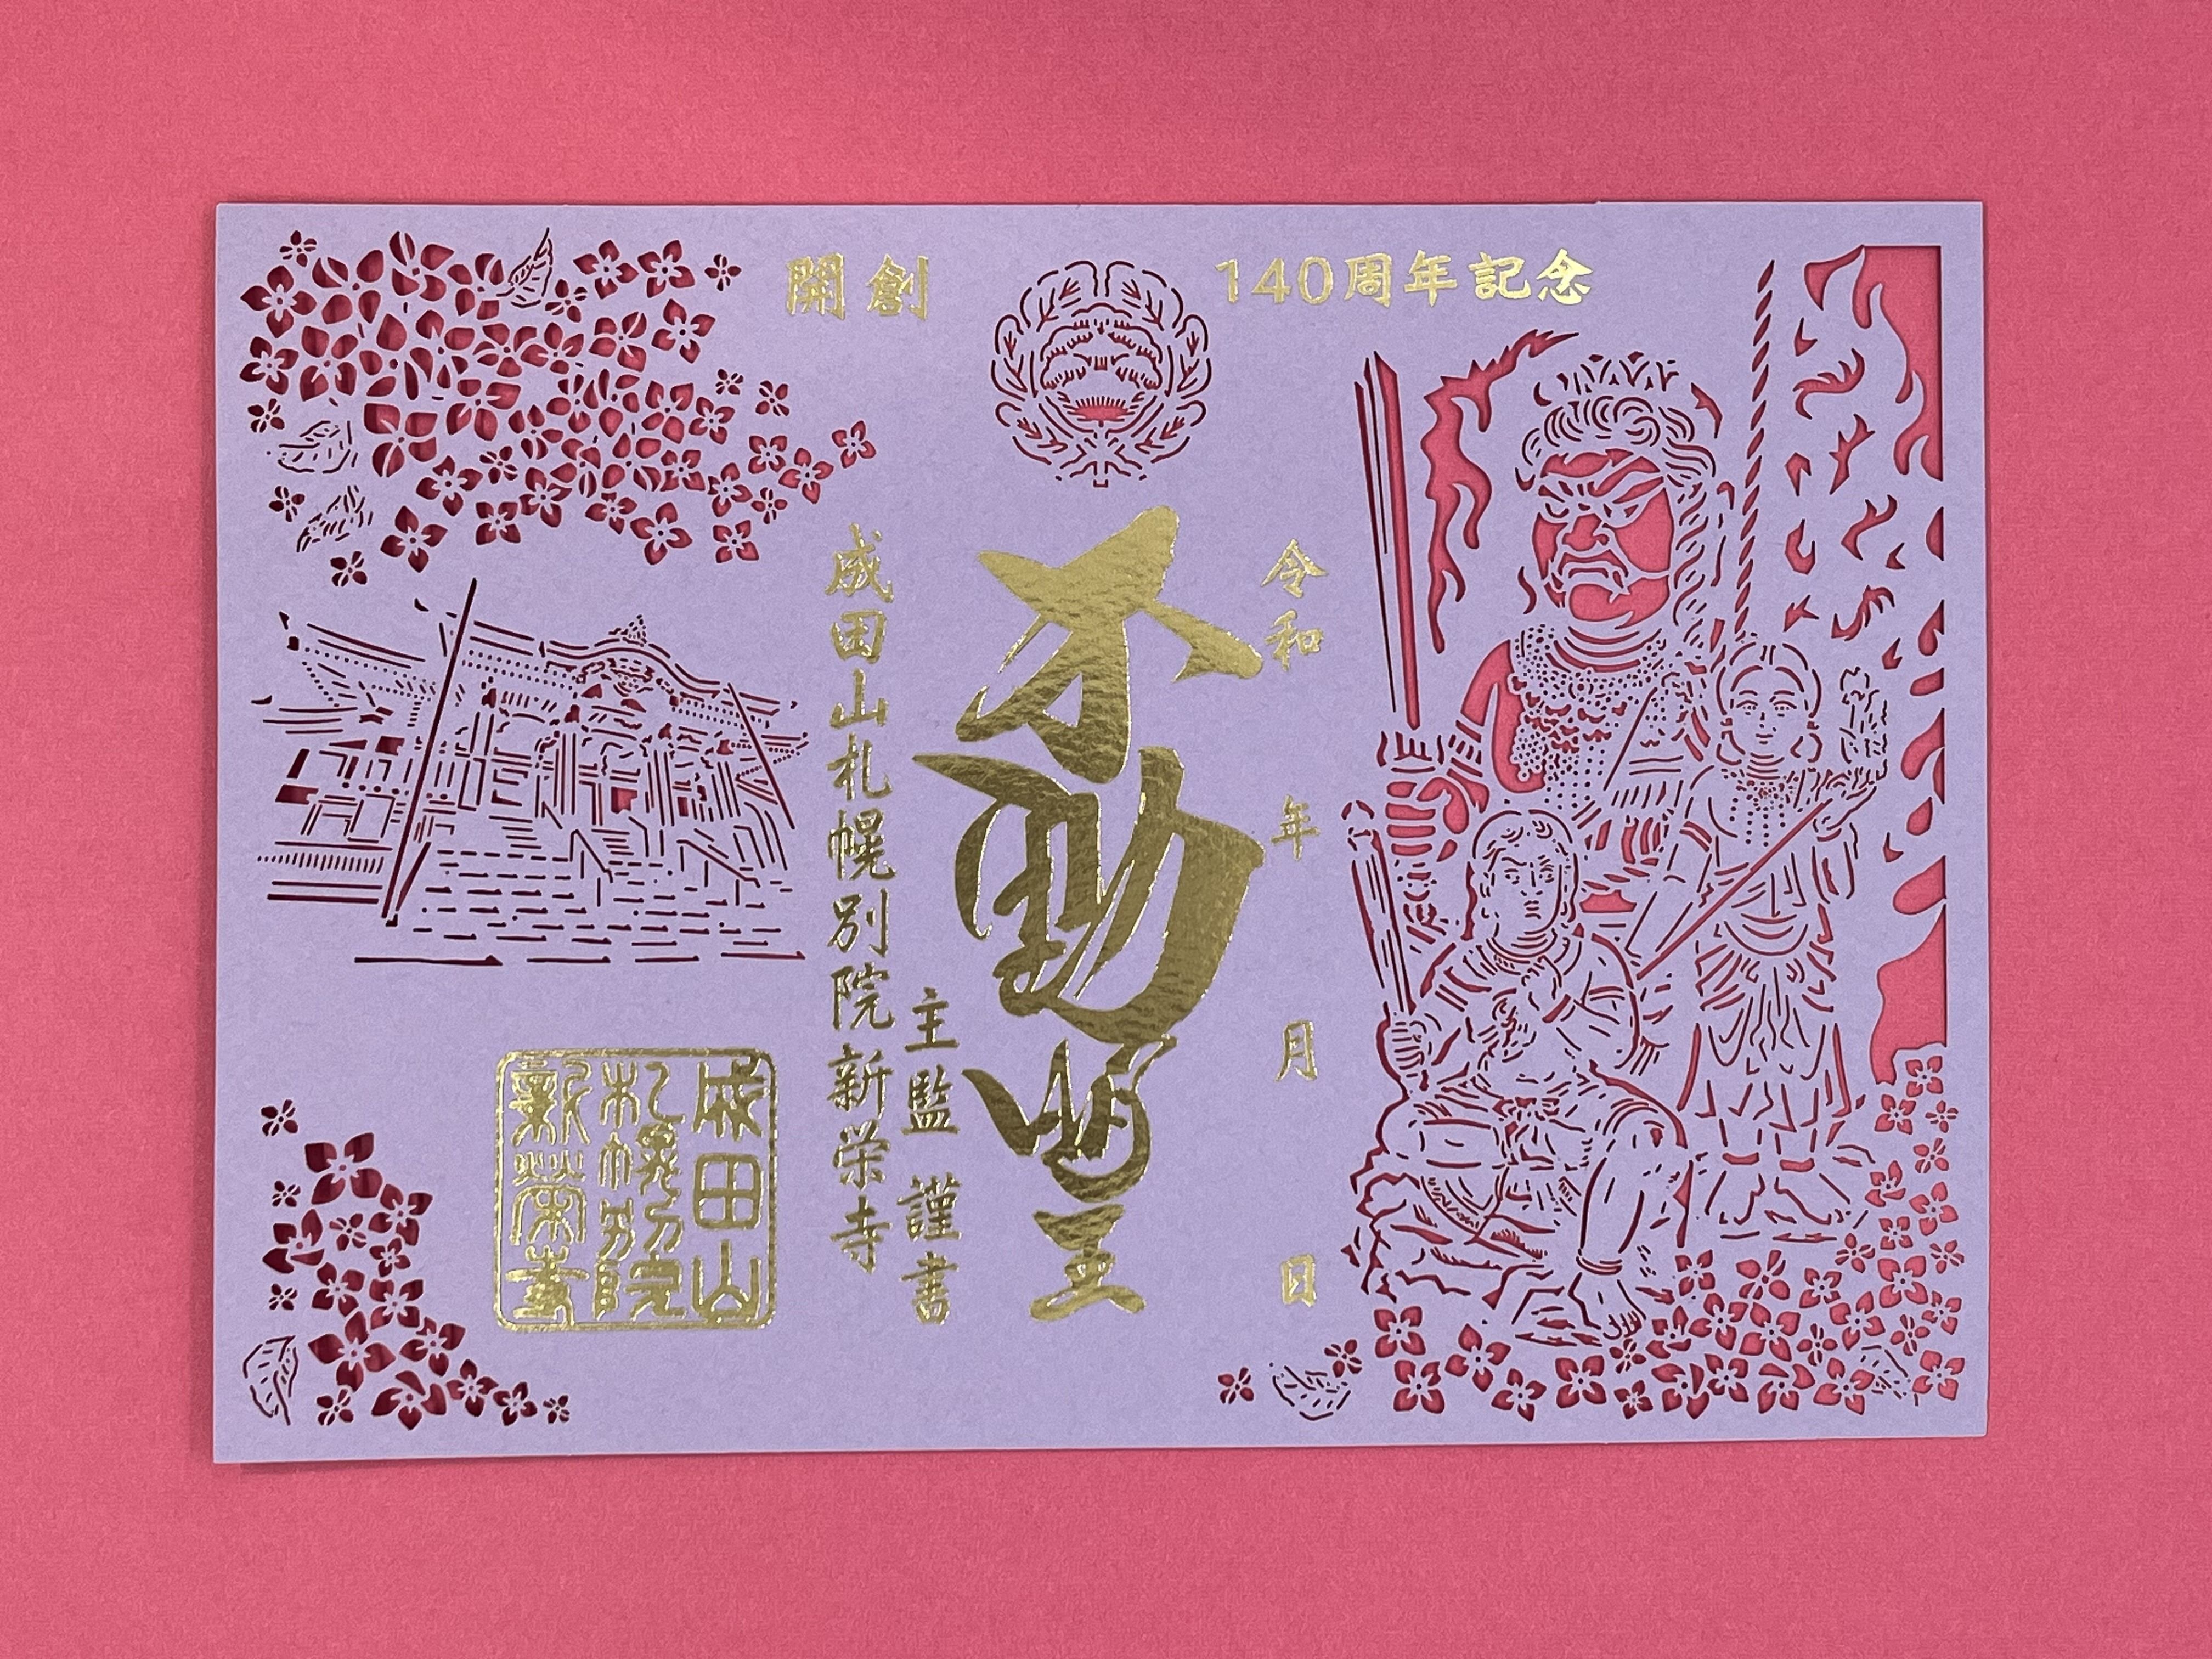 開創 140周年記念
令和 年 月 日
不動明王
主監 謹書
成田山札幌別院新栄寺
成田山
札幌別院
新榮寺